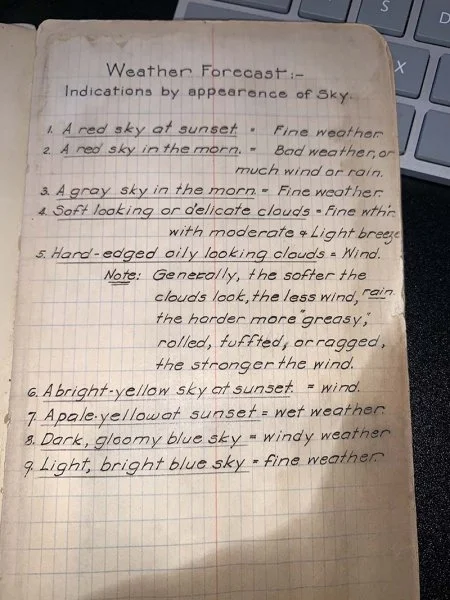 Weather Forecast:-
Indications by appearence of Sky.
1. A red sky at sunset = Fine weather.
2. A red sky in the morn. = Bad weather, or
much wind or rain.
3. A gray sky in the morn = Fine weather.
4. Soft looking or delicate clouds = Fine wthr.
with moderate & Light breeze
5. Hard-edged oily looking clouds = Wind.
Note: Generally, the softer the
clouds look, the less wind, rain.
the harder more "greasy,"
rolled, tuffted, or ragged,
the stronger the wind.
6. A bright-yellow sky at sunset. = wind.
7. A pale-yellow at sunset = wet weather.
8. Dark, gloomy blue sky = windy weather
9. Light, bright blue sky = fine weather.
S
D
X